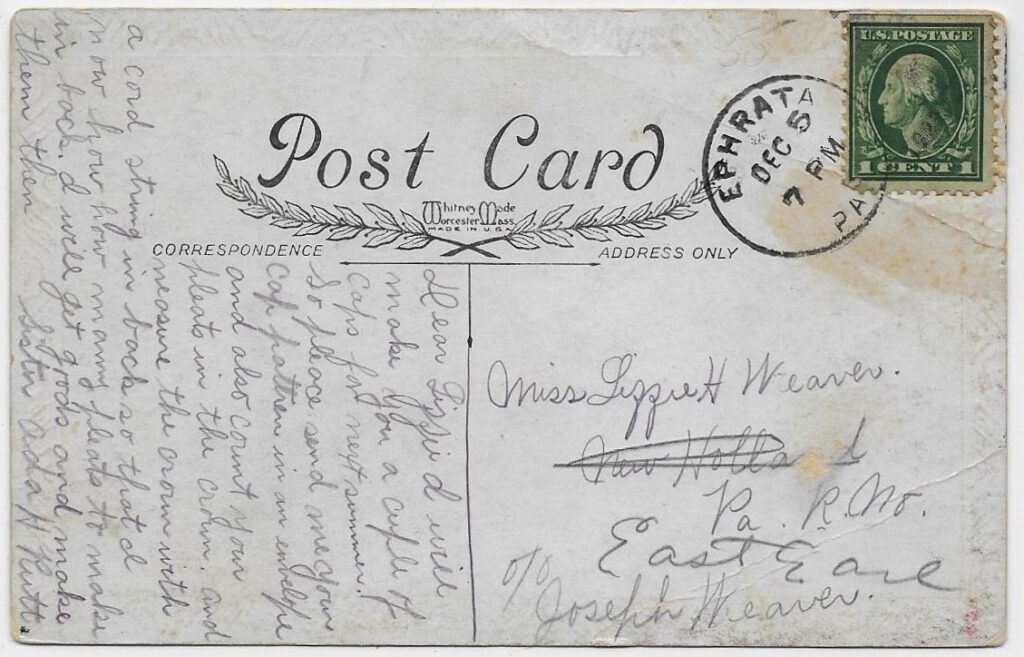 U.S. POSTAGE
1 CENT 1
EPHRATA
DEC 5
7 PM
PA
Post Card
Whitney Made
Worcester Mass.
MADE IN U.S.A.
CORRESPONDENCE
ADDRESS ONLY
Dear Lizzie I will
make you a cuple of
caps for next summer.
So pleace send me your
cap pattren in an
and also count your
pleats in the crown. and
measure the crown with
a cord string in back so that I
now how how many pleats to make
in back. I will get goods and make
them then Sister Ada H
Miss Lizzie H Weaver.
New Holland
Pa. R. No.
East Earl
c/o
Joseph Weaver.